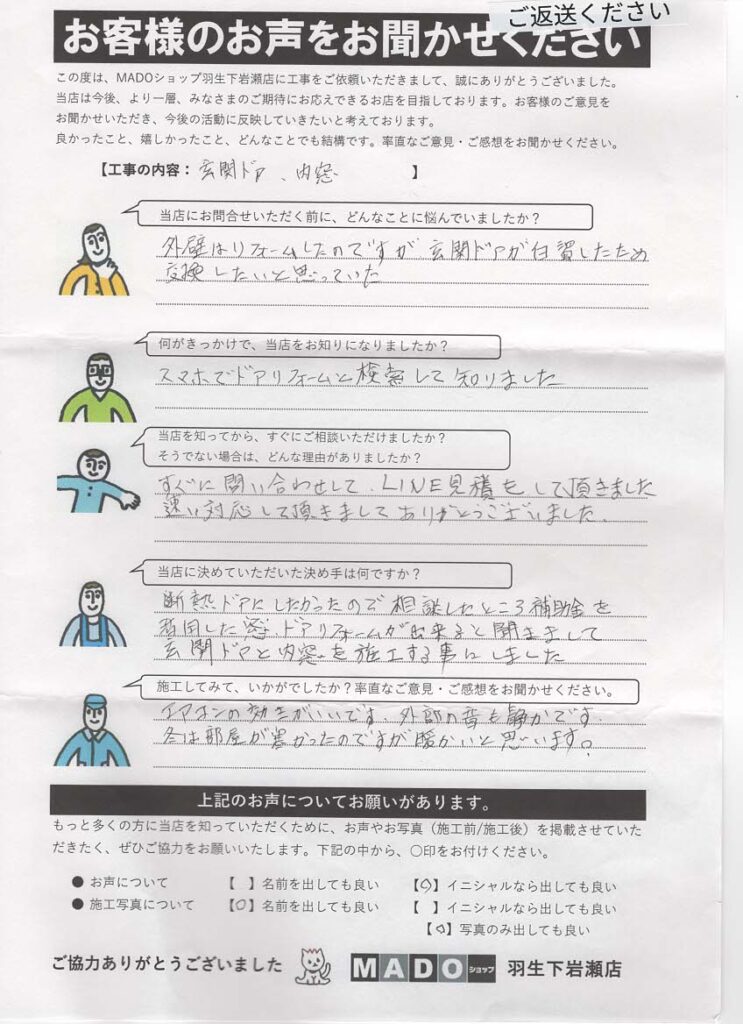 ご返送ください
お客様のお声をお聞かせください
この度は、MADOショップ羽生下岩瀬店に工事をご依頼いただきまして、誠にありがとうございました。
当店は今後、より一層、みなさまのご期待にお応えできるお店を目指しております。お客様のご意見を
お聞かせいただき、今後の活動に反映していきたいと考えております。
良かったこと、嬉しかったこと、どんなことでも結構です。率直なご意見・ご感想をお聞かせください。
【工事の内容：玄関ドア、内窓 】
当店にお問合せいただく前に、どんなことに悩んでいましたか？
外壁はリフォームしたのですが玄関ドアが したため
交換したいと思っていた
何がきっかけで、当店をお知りになりましたか？
スマホでドアリフォームと検索して知りました
当店を知ってから、すぐにご相談いただけましたか？
そうでない場合は、どんな理由がありましたか？
すぐに問い合わせして、LINE見積をして頂きました
速い対応して頂きましてありがとうございました。
当店に決めていただいた決め手は何ですか？
断熱ドアにしたかったので相談したところ補助金を
した窓、ドアリフォームが出来ると聞きまして
玄関ドアと内窓を施工する事にしました
施工してみて、いかがでしたか？率直なご意見・ご感想をお聞かせください。
エアコンの効きがいいです。外部の音も静かです。
冬は部屋が寒かったのですが暖かいと思います。
上記のお声についてお願いがあります。
もっと多くの方に当店を知っていただくために、お声やお写真（施工前/施工後）を掲載させていた
だきたく、ぜひご協力をお願いいたします。下記の中から、〇印をお付けください。
● お声について 【 】名前を出しても良い 【〇】イニシャルなら出しても良い
● 施工写真について 【〇】名前を出しても良い 【 】イニシャルなら出しても良い
【〇】写真のみ出しても良い
ご協力ありがとうございました MADOショップ 羽生下岩瀬店